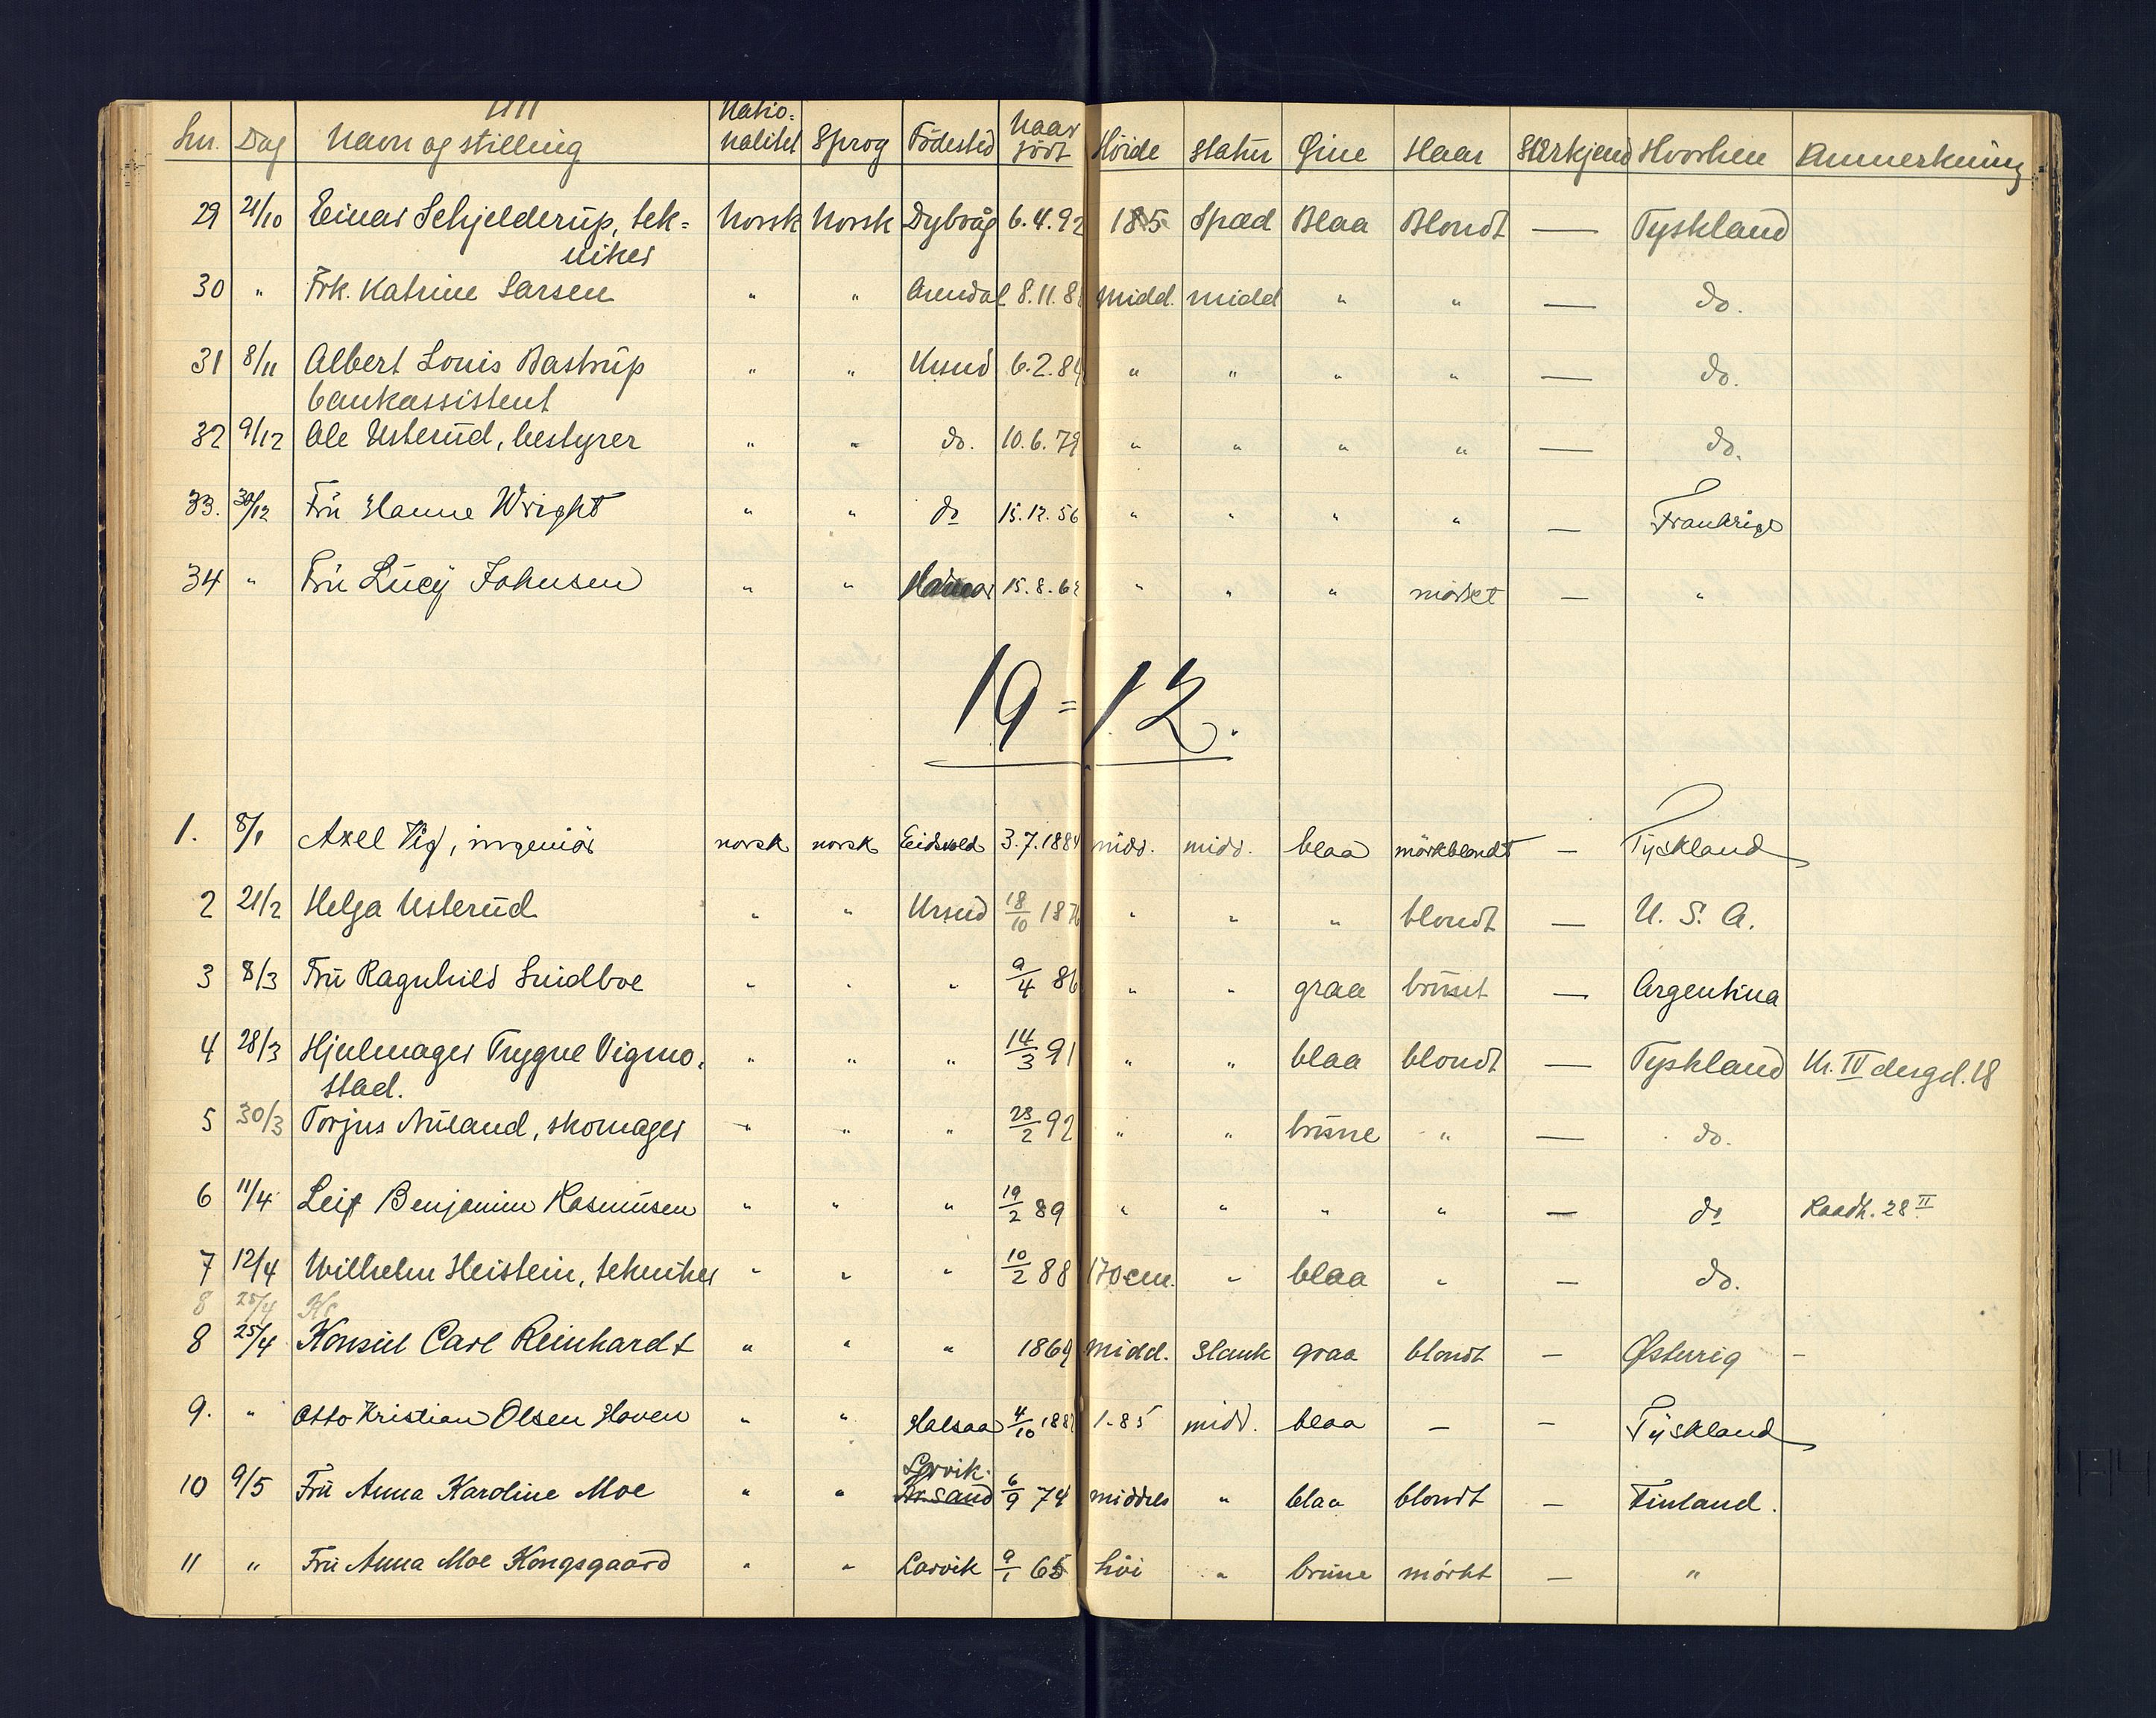 1911
Lnr. Dag Navn og stilling Natio=nalitet Sprog Fødested Naar født Höide Statur Øine Haar Særkjend Hvorhen Anmerkning
29 21/10 Einar Schjelderup, tek= Norsk Norsk Dybvåg 6.4.92 185 Spæd Blaa Blondt — Tyskland
niker
30 " Frk. Katrine Larsen " " Arendal 8.11.8 Midd. midd " " — do.
31 8/11 Albert Louis Bastrup " " Krsnd 6.2.84 " " " " — do.
bankassistent
32 9/12 Ole Usterud, bestyrer " " do. 10.6.79 " " " " — do.
33. 30/12 Fru Hanne Wright " " do 15.12.56 " " " " — Frankrige
34 " Fru Lucy Johnsen " " Hamar 15.8.6 " " " mörket — "
19=12.
1. 8/1 Axel Vig, ingeniör norsk norsk Eidsvold 3.7.1884 midd. midd. blaa mörkblondt — Tyskland
2 21/2 Helga Usterud " " Krsnd 18/10 187 " " " blondt — U. S. A.
3 8/3 Fru Ragnhild Smidboe " " " 9/4 86 " " graa brunt — Argentina
4 28/3 Hjulmager Trygve Vigmo- " " " 14/3 91 " " blaa blondt — Tyskland Kr. IV desgd. 18
stad.
5 30/3 Torjus Aaland, skomager " " " 23/2 92 " " brune " — do.
6 11/4 Leif Benjamin Rasmusen " " " 19/2 89 " " " " — do Raadh. 28 II
7 12/4 Wilhelm Heistein, tekniker " " " 10/2 88 170 cm. " blaa " — do.
8 25/4 Ko
8 25/4 Konsul Carl Reinhardt " " " 1869 midd. Slank graa blondt — Østerrig —
9. " Otto Kristian Olsen Hoven " " Halsaa 4/10 188 1-85 midd. blaa — — Tyskland
Larvik.
10 9/5 Fru Anna Karoline Moe " " Kr.sand 6/9 74 middels " blaa blondt — Finland.
11 " Fru Anna Moe Kongsgaard " " Larvik 9/1 65 höi " brune mörkt — "